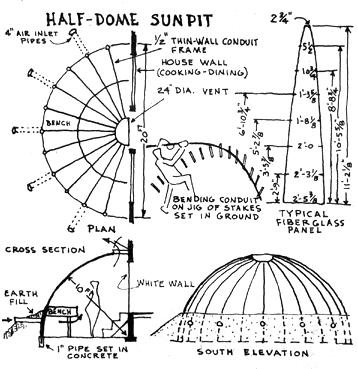 HALF-DOME SUNPIT
4" AIR INLET
PIPES
1/2" THIN-WALL CONDUIT
FRAME
HOUSE WALL
(COOKING-DINING)
24" DIA. VENT
BENCH
20'
PLAN
BENDING CONDUIT
ON JIG OF STAKES
SET IN GROUND
2 3/4"
5 1/2
10 3/4
1'-8 1/8
2'-0
2'-3 1/8
2'-5 3/8
2'-9"
3'-5 3/8
5'-2 7/8
6'-10 3/4"
8'-8 3/8
10'-5 3/8
11'-2 1/8
TYPICAL
FIBERGLASS
PANEL
CROSS SECTION
WHITE WALL
EARTH
FILL
BENCH
1" PIPE SET IN
CONCRETE
SOUTH ELEVATION